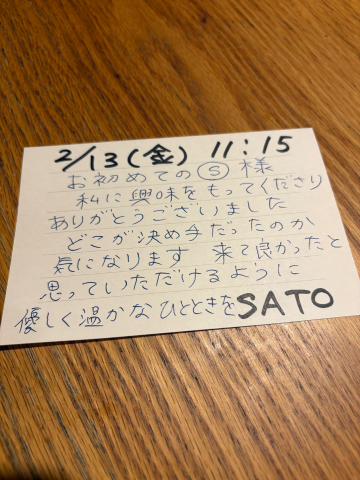 2/13(金) 11:15
お初めての Ⓢ 様
私に興味をもってくださり
ありがとうございました
どこが決め手だったのか
気になります 来て良かったと
思っていただけるように
優しく温かなひとときを SATO